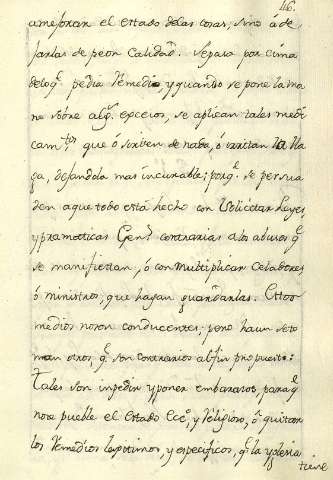 46.
a mejorar el estado delas cosas, sino á de
jarlas de peor Calidad. Sepasa por cima
delo q̃ pedia Remedio y quando se pone la ma
no sobre alg.s excesos, se aplican tales medi
cam.tos que ó sirben de nada, ó irritan la lla
ga, dejandola mas incurable; porq̃ se persua
den aque todo está hecho con Solicitar Leyes,
y pramaticas Gen.s contrarias alos abusos q̃
se manifiestan, ó con multiplicar Celadores
ó ministros, que hayan guardarlas. Estos
medios noson conducentes; pero haun se to
man otros, q̃ son contrarios alfin propuesto:
Tales son inpedir y poner embarazos, para q̃
no se pueble el estado Ecc.o y Religioso, ó quitar
los Remedios legitimos, y especificos, q̃ la yglesia
tiene